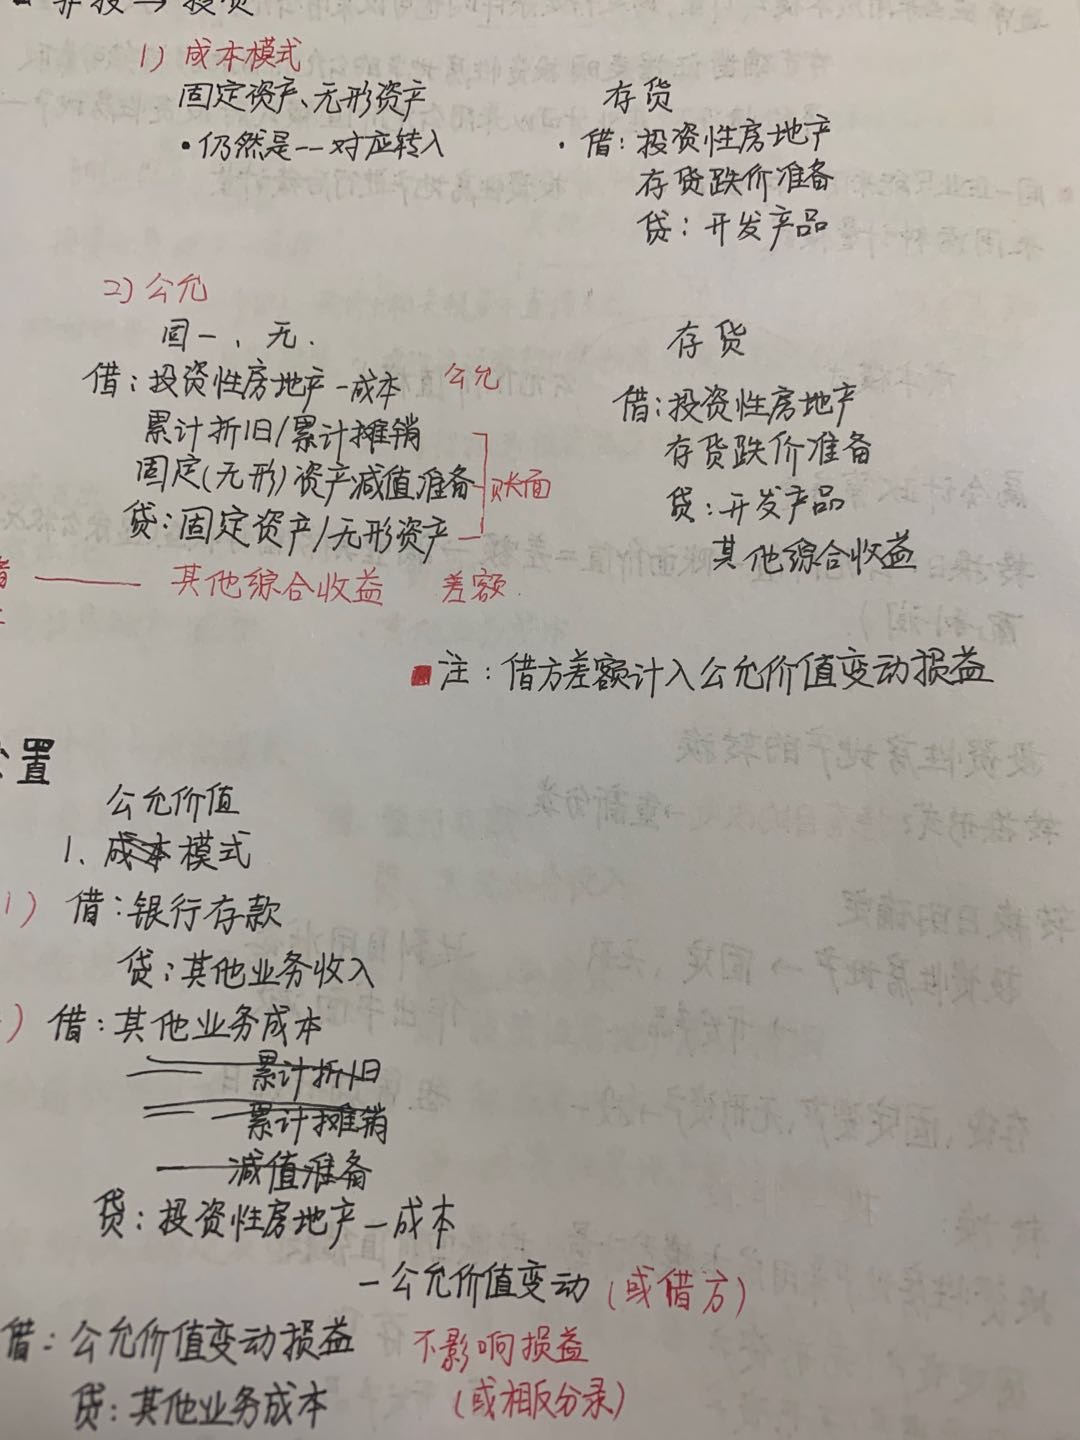 非投→投资
1) 成本模式
固定资产、无形资产
·仍然是一一对应转入
存货
· 借：投资性房地产
存货跌价准备
贷：开发产品
2) 公允
固一、无.
借：投资性房地产-成本 公允
累计折旧/累计摊销
固定(无形)资产减值准备
贷：固定资产/无形资产
账面
其他综合收益 差额.
存货
借:投资性房地产
存货跌价准备
贷：开发产品
其他综合收益
注：借方差额计入公允价值变动损益
置
公允价值
1、成本模式
1) 借：银行存款
贷：其他业务收入
) 借：其他业务成本
累计折旧
累计摊销
减值准备
贷：投资性房地产-成本
-公允价值变动 (或借方)
借：公允价值变动损益 不影响损益
贷：其他业务成本 (或相反分录)